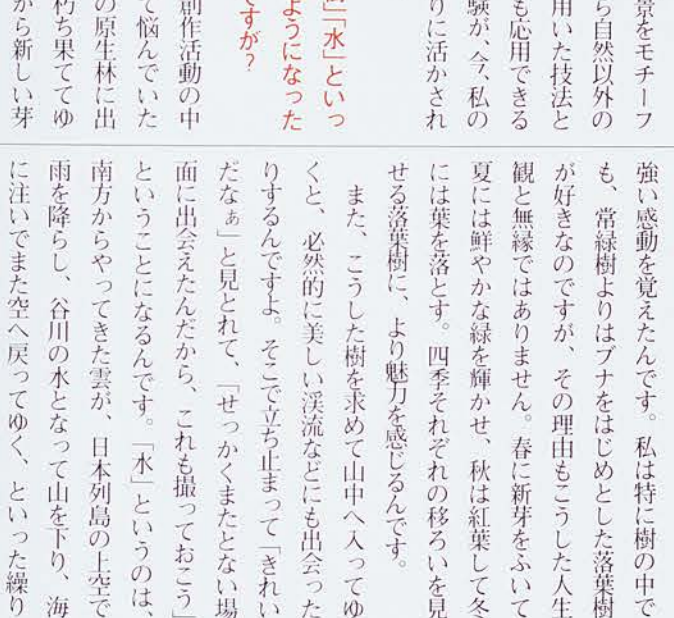 景をモチーフ
ら自然以外の
用いた技法と
も応用できる
験が、今、私の
りに活かされ
」「水」といっ
ようになった
ですが？
創作活動の中
て悩んでいた
の原生林に出
朽ち果ててゆ
から新しい芽
強い感動を覚えたんです。私は特に樹の中で
も、常緑樹よりはブナをはじめとした落葉樹
が好きなのですが、その理由もこうした人生
観と無縁ではありません。春に新芽をふいて
夏には鮮やかな緑を輝かせ、秋は紅葉して冬
には葉を落とす。四季それぞれの移ろいを見
せる落葉樹に、より魅力を感じるんです。
また、こうした樹を求めて山中へ入ってゆ
くと、必然的に美しい渓流などにも出会った
りするんですよ。そこで立ち止まって「きれい
だなぁ」と見とれて、「せっかくまたとない場
面に出会えたんだから、これも撮っておこう」
ということになるんです。「水」というのは、
南方からやってきた雲が、日本列島の上空で
雨を降らし、谷川の水となって山を下り、海
に注いでまた空へ戻ってゆく、といった繰り